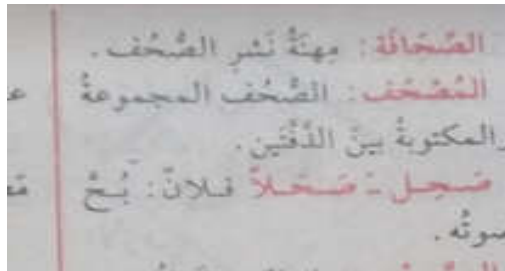 الصَّحَافَة: مِهنَةُ نَشرِ الصُّحُف.
المُصْحَف: الصُّحُف المجموعةُ
والمكتوبةُ بينَ الدَّفَّتَين.
صَحِل ـَ صَحَلاً فلانٌ: بُحَّ
صوتُه.